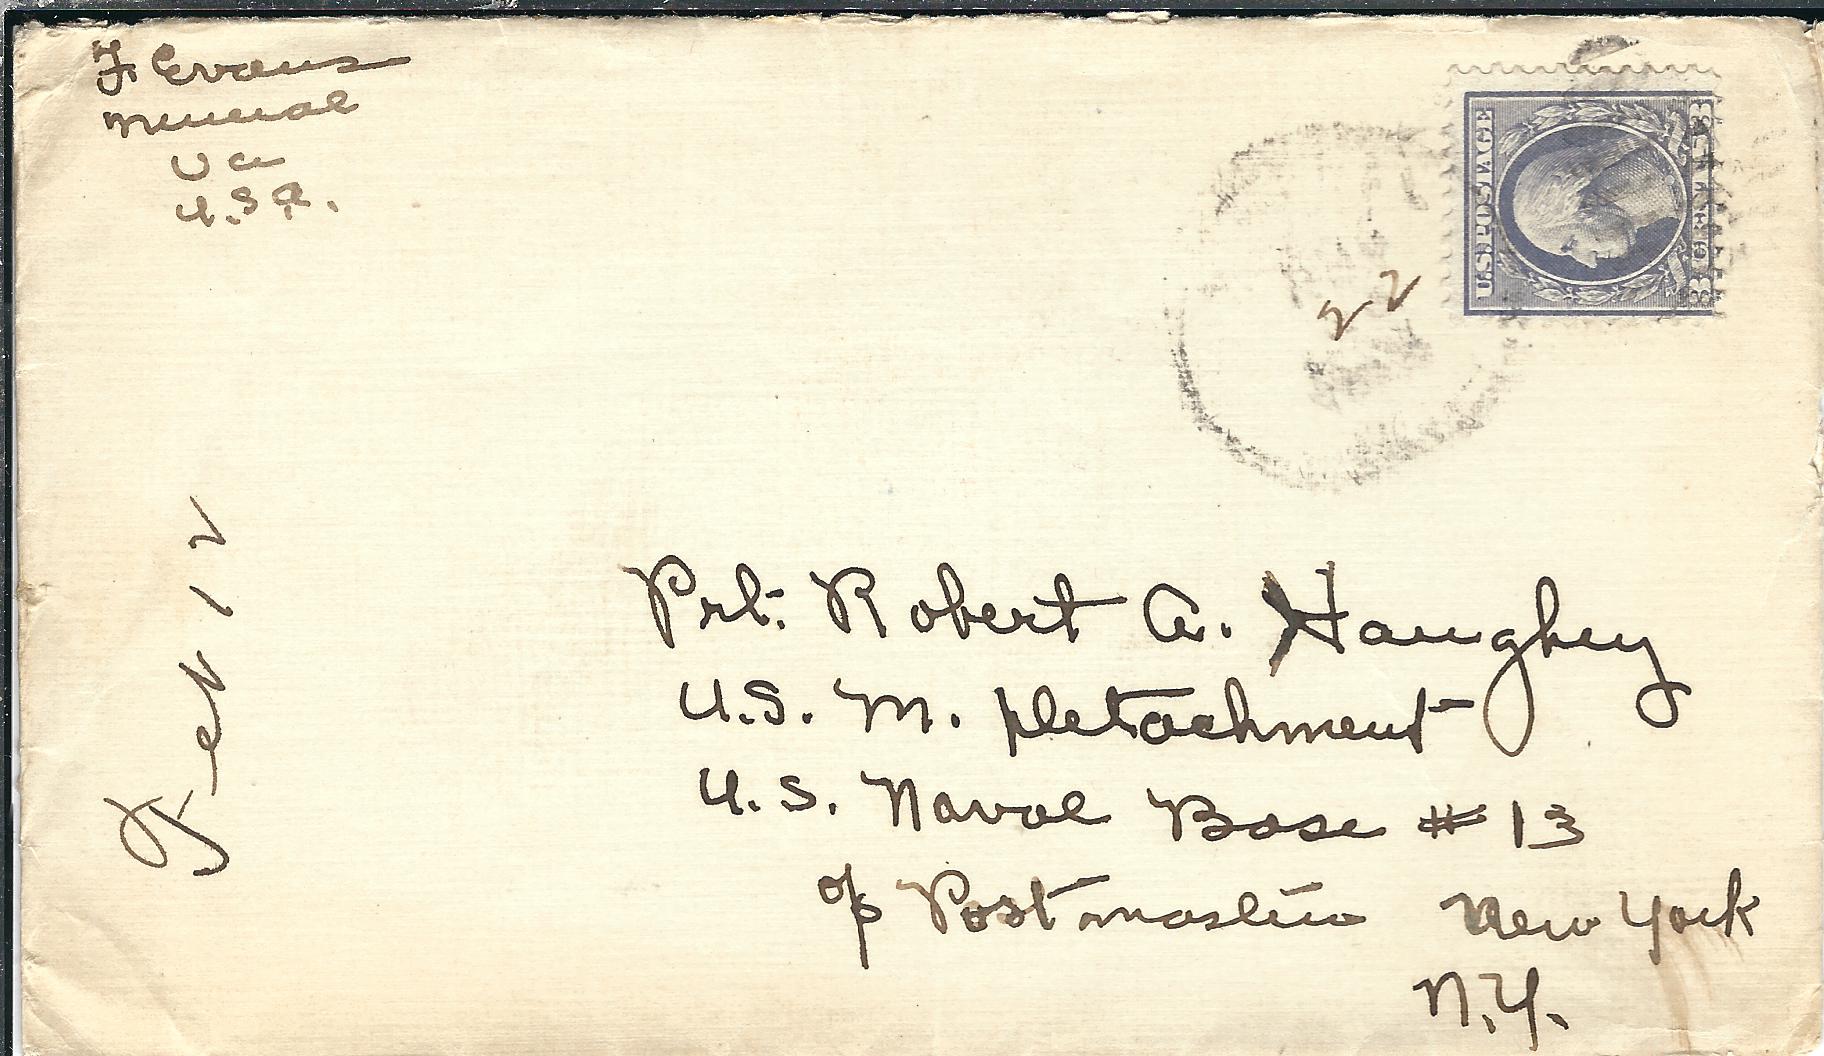 F. Evans
Mineral
Va
U.S.A.
U.S. POSTAGE
3 CENTS 3
22
Feb 12
Pvt. Robert A. Haughey
U.S. M. Detachment
U.S. Naval Base # 13
c/o Postmaster New York
N.Y.